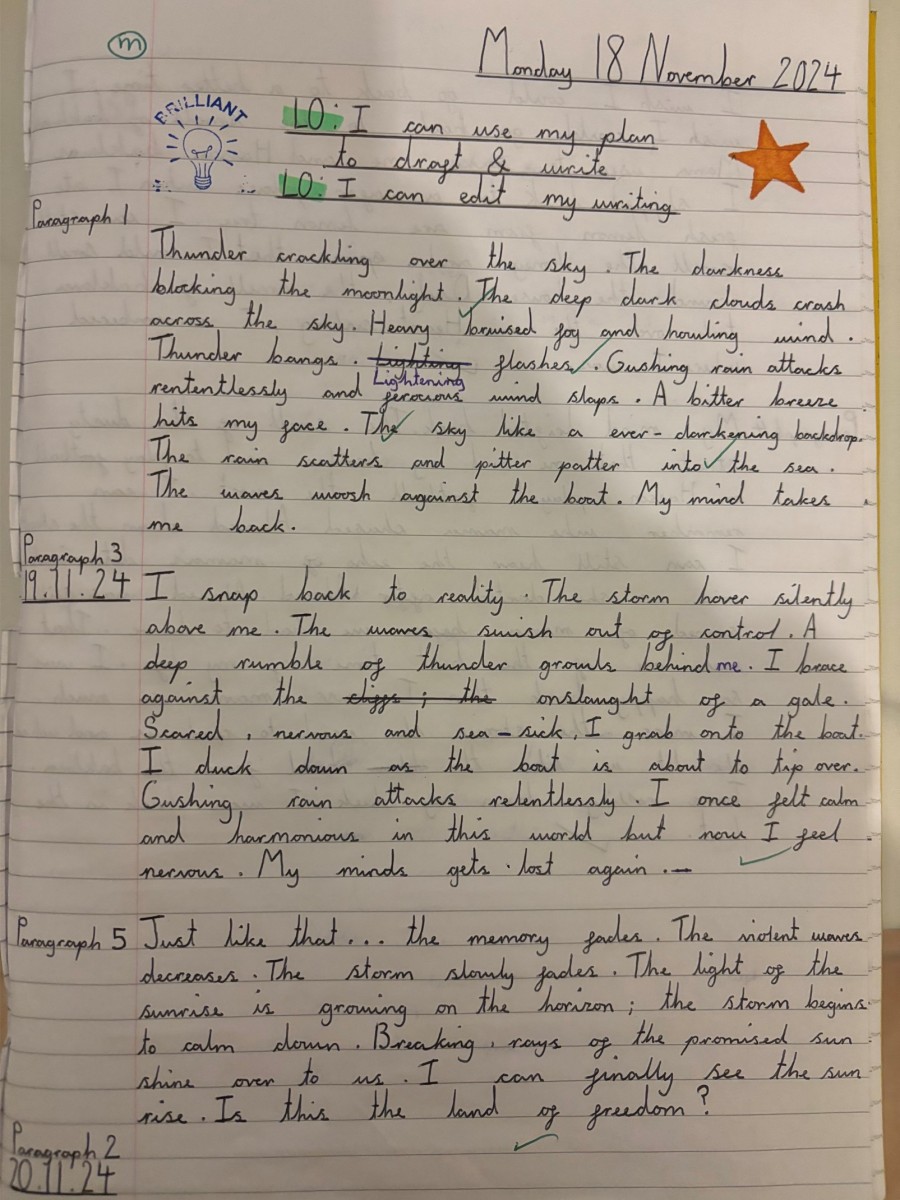 m
Monday 18 November 2024
BRILLIANT
LO: I can use my plan
to draft & write
LO: I can edit my writing
Paragraph 1
Thunder crackling over the sky. The darkness
blocking the moonlight. The deep dark clouds crash
across the sky. Heavy bruised fog and howling wind.
Thunder bangs. Lighting flashes. Gushing rain attacks
Lightening
rententlessly and ferocious wind slaps. A bitter breeze
hits my face. The sky like a ever-darkening backdrop.
The rain scatters and pitter patter into the sea.
The waves woosh against the boat. My mind takes
me back.
Paragraph 3
19.11.24
I snap back to reality. The storm hover silently
above me. The waves swish out of control. A
deep rumble of thunder growls behind me. I brace
against the cliffs; the onslaught of a gale.
Scared, nervous and sea-sick, I grab onto the boat.
I duck down as the boat is about to tip over.
Gushing rain attacks relentlessly. I once felt calm
and harmonious in this world but now I feel
nervous. My minds gets lost again.
Paragraph 5
Just like that... the memory fades. The violent waves
decreases. The storm slowly fades. The light of the
sunrise is growing on the horizon; the storm begins
to calm down. Breaking, rays of the promised sun
shine over to us. I can finally see the sun
rise. Is this the land of freedom?
Paragraph 2
20.11.24